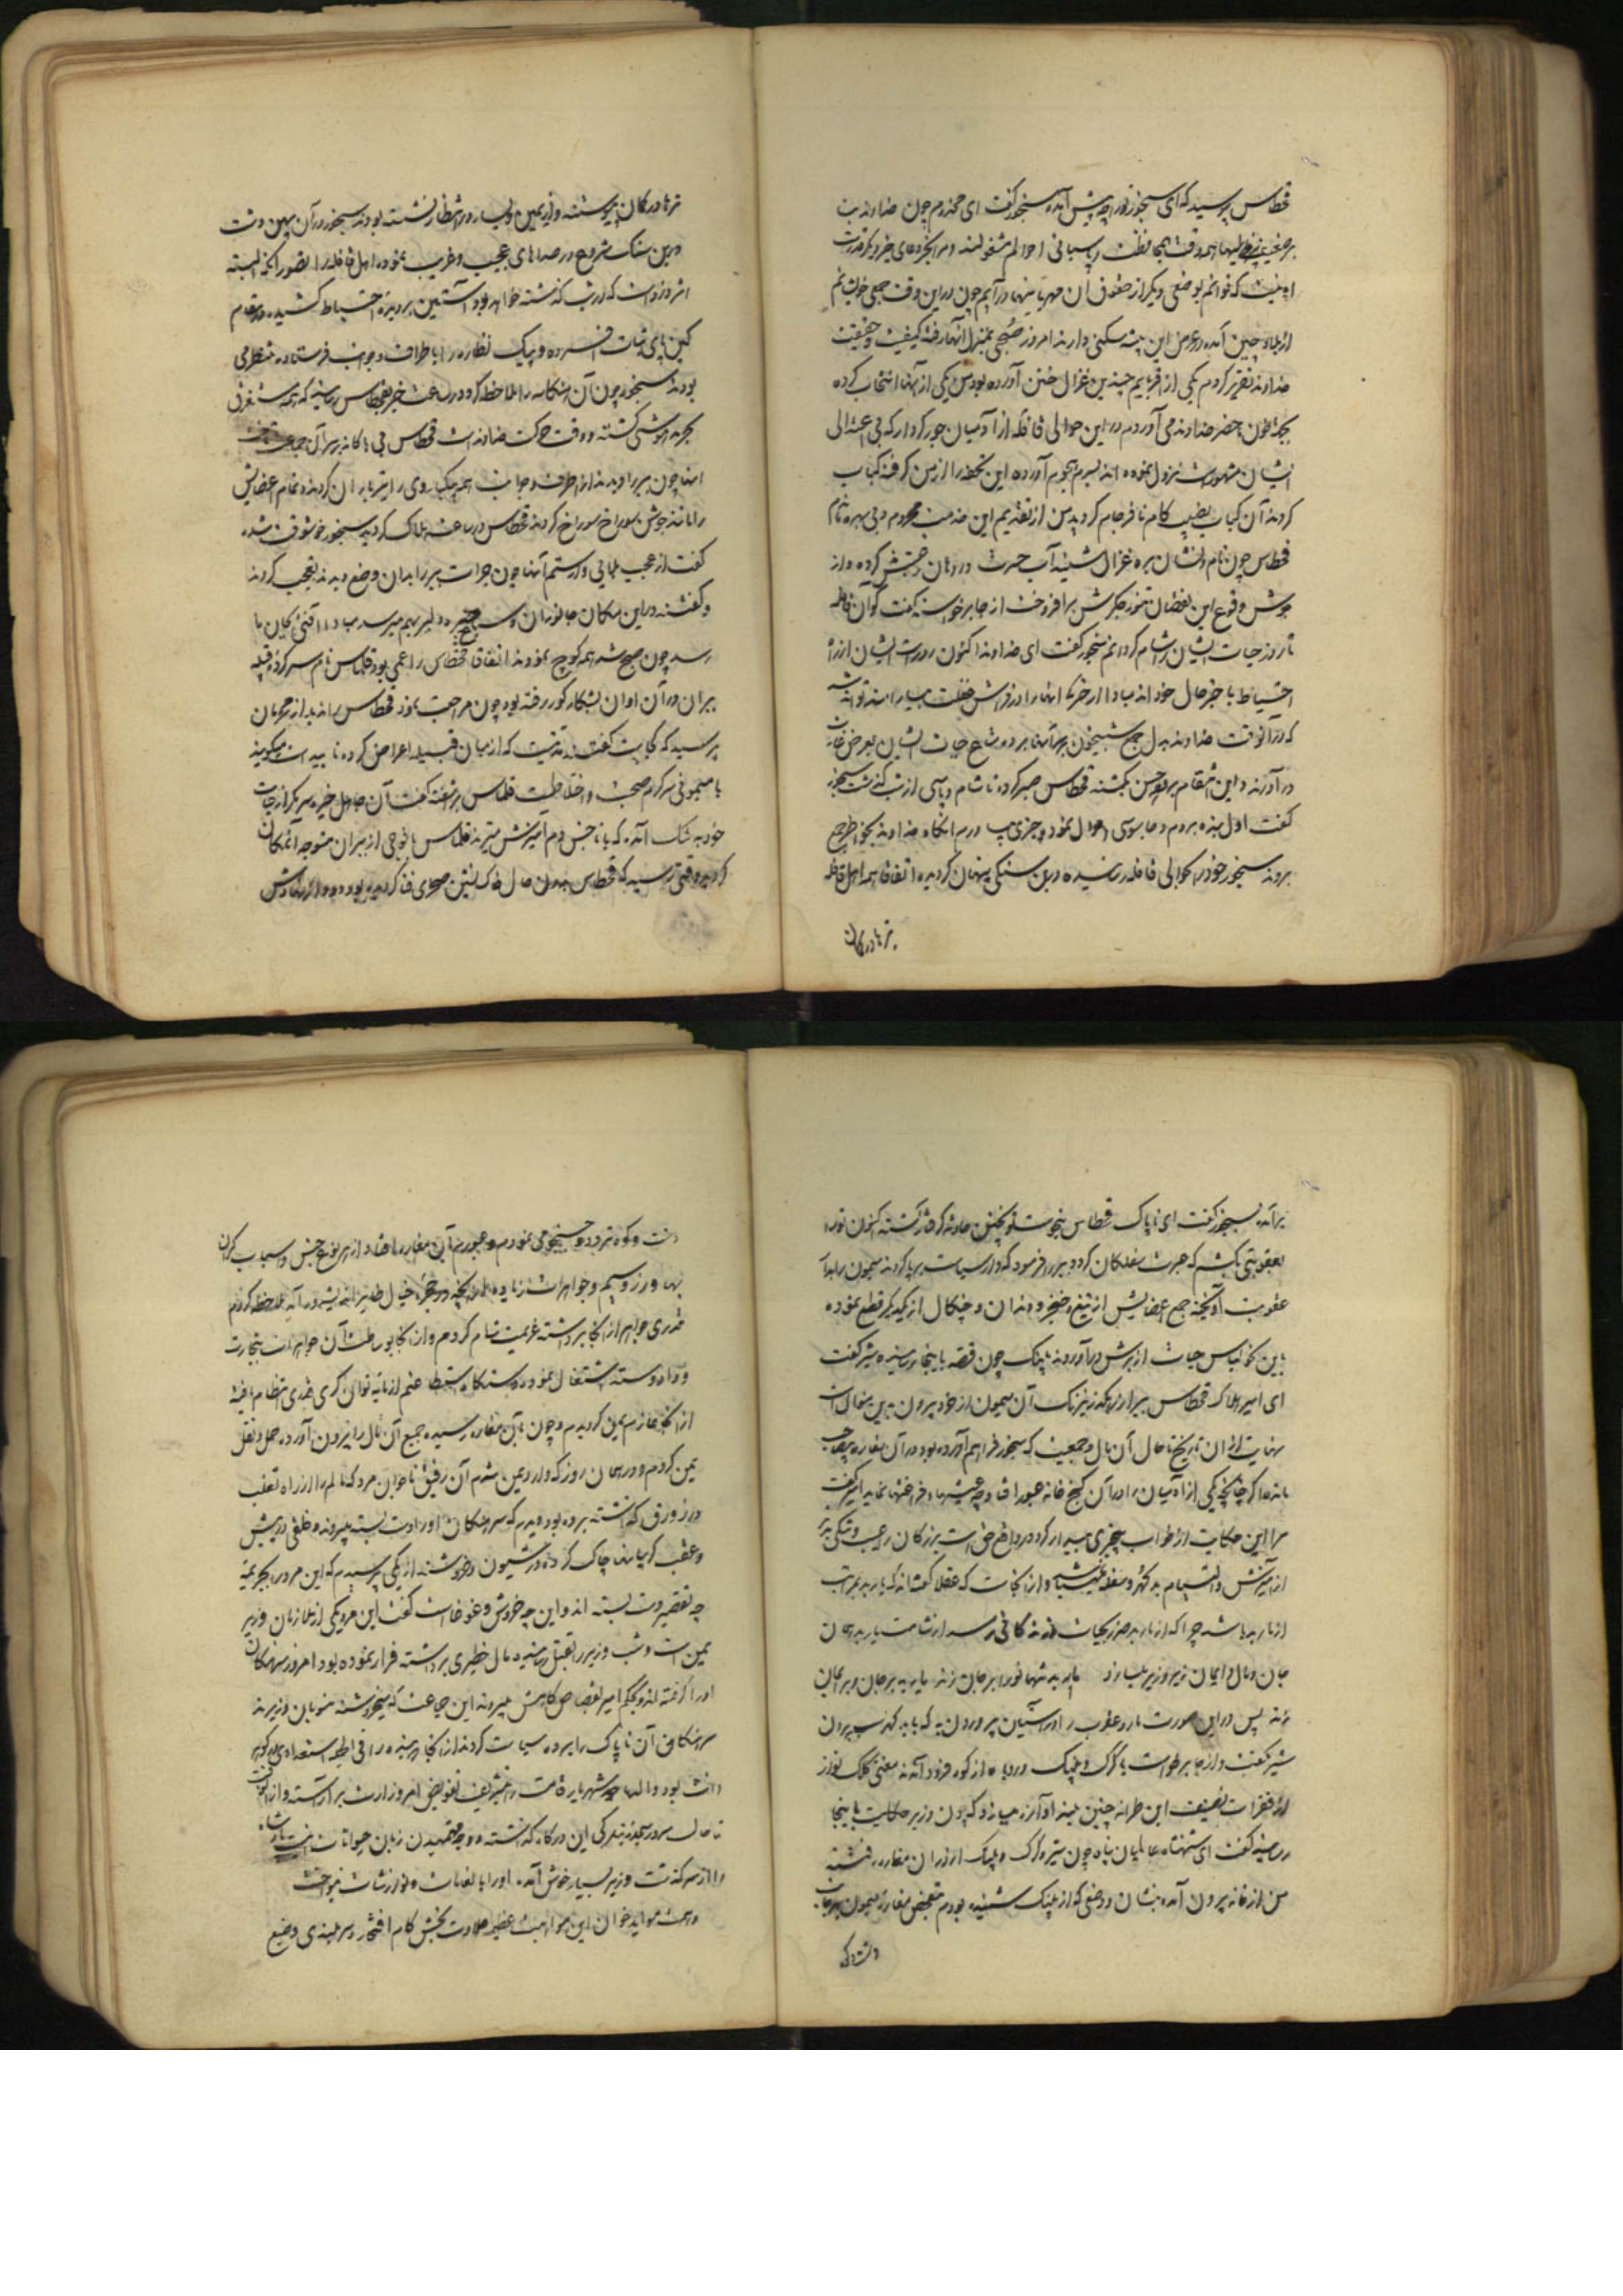 قطاس پرسید که ای سنجور ترا چه پیش آمده سنجور گفت ای مخدوم چون خداوند بت
همه وقت بمحافظت و پاسبانی احوالم مشغولند و مرا بجز دعای خیر دیگر قدرت
که توانم بوضعی دیگر از حقوق آن مهربانیها درآیم چون در این وقت جمعی خویشانم
از بلاد چین آمده در عرض این بیشه سکنی دارند امروز صبحی بمنزل آنها رفته کیفیت و حقیقت
خداوند تقریر کردم یکی از اقربایم چندین غزال ختن آورده بود من یکی از آنها انتخاب کرده
بجهة حضر خداوند می آوردم در این حوالی قافله از آدمیان جور کردار که بی اعتدالی
ایشان مشهور است نزول نموده اند بسرم هجوم آورده این تحفه را از من گرفته کباب
کردند آن کباب نصیب کام نافرجام گردید من از تقدیم این خدمت محروم و بی بهره ماندم
قطاس چون نام و نشان بره غزال شنید آب حسرت در دهان بجنبش کرده و از
جوش وقوع این نقصان تنور جگرش برافروخت از جا برخواست گفت کو آن قافله
تا روز حیات ایشان را شام گردانم سنجور گفت ای خداوند اکنون روز است ایشان از راه
احتیاط با خبر حال خود اند مبادا از خریکه آنها را در فراش غفلت
که در آنوقت خداوند بدل جمع شبیخون بر آنها برده متاع حیات ایشان بعرض غارت
درآورند و این انتقام بوجه احسن بکشند قطاس صبر کرده تا شام و پاسی از شب گذشت سنجور
گفت اول بنده بروم و جاسوسی احوال نموده و خبری بیاورم آنگاه خداوند بخواطر جمع
بروند سنجور خود را بحوالی قافله رسانیده در بن سنگی پنهان گردید اتفاقا همه اهل قافله
تیرها در کمان
تیرها در کمان پیوسته و از یمین و یسار در انتظار نشسته بودند سنجور در آن پهن دشت
در بن سنگ شروع در صداهای عجیب و غریب نموده اهل قافله را تصور آنکه البته
اثر دزد است که در شب گذشته ظاهر بود آستین بر دیده احتیاط کشیده در مقام
کمین پای ثبات افشرده و پیک نظاره را باطراف و جوانب فرستاده منتظر می
بودند سنجور چون آن هنگامه را ملاحظه کرد در ساعت خبر بقطاس رسانید که همه مستغرق
بحر بیهوشی گشته و وقت حرکت خداوند است قطاس بی باکانه بر سر آن جماعت تاخت
اینها چون ببر را دیدند از اطراف و جوانب همه یکباره وی را تیرباران کردند و تمام اعضایش
را مانند جوش سوراخ سوراخ کردند قطاس در ساعت هلاک گردید سنجور خوشوقت شده
گفت از عجب بلائی وا رستم آنها چون جرأت ببر را بدان وضع دیدند تعجب کردند
و گفتند در این مکان جانوران و سباع خیره و دلیر بهم میرسد مبادا آفتی بکیان ما
رسد چون صبح شد همه کوچ نمودند اتفاقا قطاس را عمی بود قلماس نام سرکرده قبیله
ببران در آن اوان بشکار گور رفته بود چون مراجعت نمود قطاس را ندید از محرمان
پرسید که کجاست گفتند مدتیست که از میان قبیله اعراض کرده ناپیداست میگویند
با میمونی سرگرم صحبت و اختلاط است قلماس برآشفته گفت آن جاهل خیره سر مگر از حیات
خود به تنگ آمده که با ناجنس دم آمیزش میزند قلماس با فوجی از ببران متوجه آنمکان
گردید وقتی رسید که قطاس بدان حال خاک نشین صحرای فنا گردیده بود دود از نهادش
برآمد بسنجور گفت ای ناپاک قطاس بنحوست تو بچنین حادثه گرفتار گشته اکنون ترا
بعقوبتی بکشم که عبرت سفلگان گردد ببران را فرمود که دار سیاست بر پا کردند میمون را بدار
عقوبت آویخته جمیع اعضایش از تیغ و خنجر و دندان و چنگال از یکدیگر قطع نموده
باین نحو لباس حیات از برش درآوردند پلنگ چون قصه باینجا رسانید شیر گفت
ای امیر هلاک قطاس ببر از نیرنگ آن میمون از خود بیرون
نهایت از آن تاریخ تا حال آن مال و جمعیت که سنجور فراهم آورده بود در آن مغاره بی صاحب
مانده اگر چنانچه یکی از آدمیان را در آن گنج خانه عبور افتد چه عیشها و فراغتها نماید امیر گفت
مرا این حکایت از خواب بیخبری بیدار کرد در واقع حق است بزرگان را عیب و ننگی بدتر
از آمیزش و التیام بد گهر و سفله نمیباشد و از اینجاست که عقلا گفته اند که یار بد بمراتب
از مار بد باشد چرا که از مار بد ضرر بحیات زندگانی رسد و از شامت یار بد همان
جان و مال و ایمان زیر و زبر میسازد مار بد تنها ترا بر جان زند یار بد بر جان و بر ایمان
زند پس در این صورت مار و عقرب را در آستین پروردن به که با بد گهر بسر بردن
شیر گفت و از جا برخواست با گرگ و پلنگ و روباه از کوه فرود آمدند مغنی کلک نواز
از فقرات تصنیف این طرانه چنین نغمه آواز میسازد که چون وزیر حکایت باینجا
رسانید گفت ای شهنشاه عالمیان پناه چون شیر و گرگ و پلنگ از در آن مغاره رفتند
من از خانه بیرون آمده بنشان و وضعی که از پلنگ شنیده بودم تفحص مغاره میمون بهر جانب
دشت و کوه
دشت و کوه تردد و جستجو می نمودم و عبورم بآن مغاره افتاد از هر نوع جنس و اسباب گران
بها و زر و سیم و جواهرات زیاده از آنچه در حیز خیال طایر اندیشه درآید ملاحظه کردم
قدری جواهر از آنجا برداشته عزیمت شام کردم و از آنجا بوساطت آن جواهرات بتجارت
و داد و ستد اشتغال نموده دستگاه بساط عیشم از مایه توانگری قدری انتظام یافته
از آنجا عازم یمن گردیدم و چون بآن مغاره رسیده جمیع آن مال را بیرون آورده حمل و نقل
یمن کردم و در همان روز که وارد یمن شدم آن رفیق ناجوانمرد که مالم را از راه تغلب
در زورق گذاشته برده بود دیدم که سرهنگان او را دست بسته میبرند و خلقی در پیش
و عقب گریبانها چاک کرده در شیون و خروشند از یکی پرسیدم که این مرد را بجریمه
چه تقصیر دست بسته اند و این چه خروش و غوغاست گفت این مرد یکی از ملازمان وزیر
یمن است و شب وزیر را بقتل رسانیده مال خطیری برداشته فرار نموده بود امروز سرهنگان
او را گرفته اند و بحکم امیر بقصاص گاهش میبرند و این جماعت که میخروشند منسوبان وزیرند
سرهنگان آن ناپاک را برده سیاست کردند از آنجا که بنده را فی الجمله استعدادی در گوهر
دانش بود والد شهریار قامت را بتشریف تفویض امر وزارت برآراسته و از آنوقت
تا حال سر در سجده بندگی این درگاه گذاشته و وجه فهمیدن زبان حیوانات اینست پادشاه
را از سرگذشت وزیر بسیار خوش آمده او را بالتفات و نوازشات بنواخت
و همت مواید خوان این مواهبت عظیم حلاوت بخش کام افتخار و سربلندی وضیع